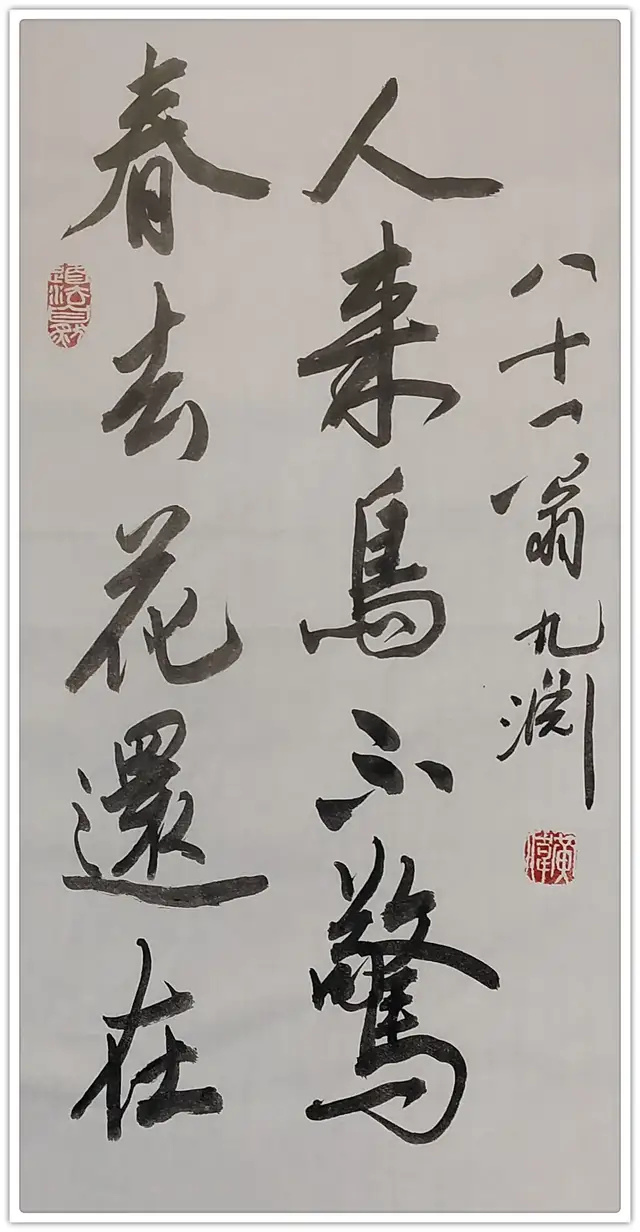 春去花還在
人来鳥不驚
八十一翁九淵
道法自然